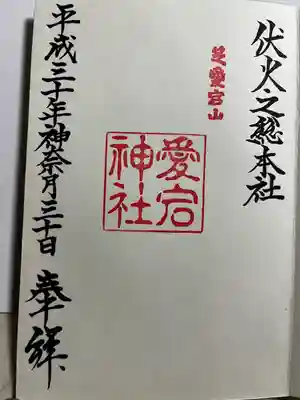 伏火之総本社
芝愛宕山
愛宕
神社
平成三十年神奈月三十日 奉拝